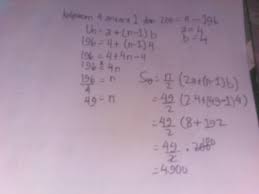 kelipatan 4 antara 1 dan 200 = n = 196
Un = a + (n-1) b
a = 4
b = 4
196 = 4 + (n-1) 4
196 = 4 + 4n - 4
196 = 4n
196/4 = n
49 = n
Sn = n/2 (2a + (n-1) b)
= 49/2 (2.4 + (49-1) 4)
= 49/2 (8 + 192
= 49/2 . 200 100
= 4900